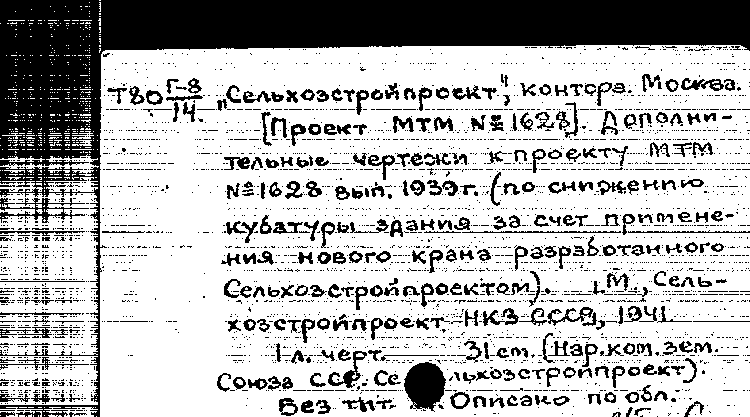 Т80 Г-8/14. „Сельхозстройпроект", контора. Москва.
[Проект МТМ №1628]. Дополни-
тельные чертежи к проекту МТМ
№1628 вып. 1939 г. (по снижению
кубатуры здания за счет примене-
ния нового крана разработанного
Сельхозстройпроектом). М., Сель-
хозстройпроект НКЗ СССР, 1941.
1 л. черт. 31 см. (Нар. ком. зем.
Союза ССР. Се льхозстройпроект).
Без тит. Описано по обл.